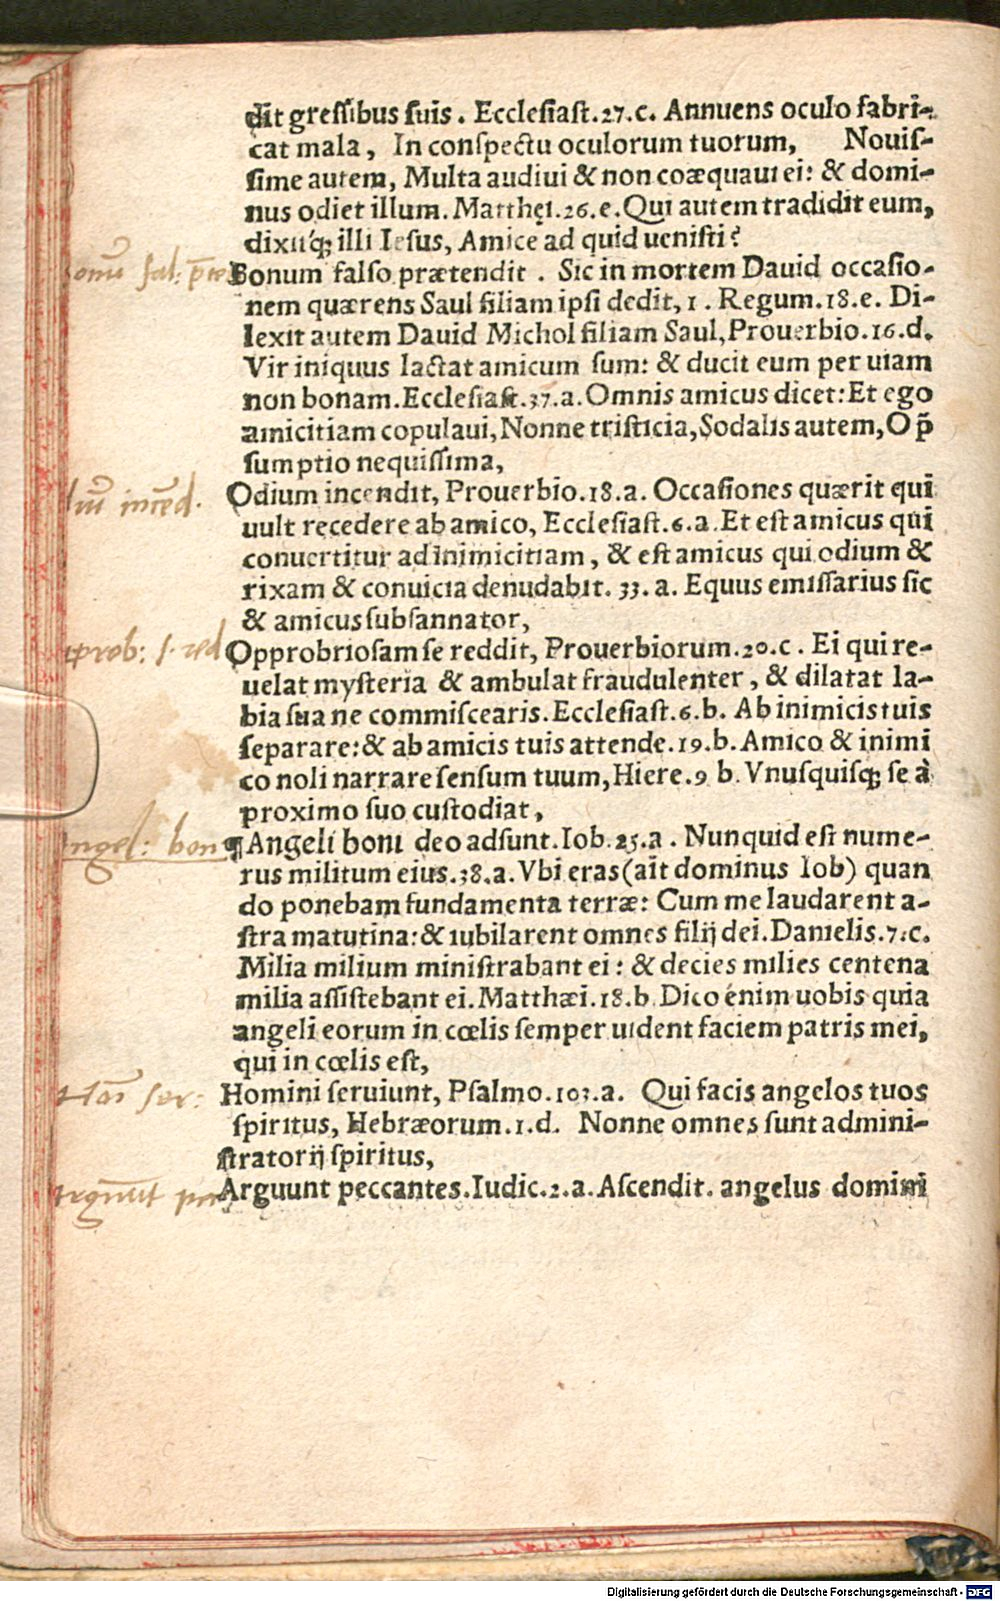 dit gressibus suis. Ecclesiast.27.c. Annuens oculo fabri-
cat mala, In conspectu oculorum tuorum, Nouis-
sime autem, Multa audiui & non coæquaui ei: & domi-
nus odiet illum. Matthęi.26.e. Qui autem tradidit eum,
dixitq; illi Iesus, Amice ad quid uenisti?
Bonum falso prætendit. Sic in mortem Dauid occasio-
nem quærens Saul filiam ipsi dedit, 1. Regum.18.e. Di-
lexit autem Dauid Michol filiam Saul, Prouerbio.16.d.
Vir iniquus lactat amicum sum: & ducit eum per uiam
non bonam. Ecclesiast.37.a. Omnis amicus dicet: Et ego
amicitiam copulaui, Nonne tristicia, Sodalis autem, O p̃
sumptio nequissima,
Odium incendit, Prouerbio.18.a. Occasiones quærit qui
uult recedere ab amico, Ecclesiast.6.a. Et est amicus qui
conuertitur ad inimicitiam, & est amicus qui odium &
rixam & conuicia denudabit. 33.a. Equus emissarius sic
& amicus subsannator,
Opprobriosam se reddit, Prouerbiorum.20.c. Ei qui re-
uelat mysteria & ambulat fraudulenter, & dilatat la-
bia sua ne commiscearis. Ecclesiast.6.b. Ab inimicis tuis
separare: & ab amicis tuis attende.19.b. Amico & inimi
co noli narrare sensum tuum, Hiere.9 b. Vnusquisq; se à
proximo suo custodiat,
¶ Angeli boni deo adsunt. Iob.25.a. Nunquid est nume-
rus militum eius.38.a. Vbi eras (ait dominus Iob) quan
do ponebam fundamenta terræ: Cum me laudarent a-
stra matutina: & iubilarent omnes filij dei. Danielis.7.c.
Milia milium ministrabant ei: & decies milies centena
milia assistebant ei. Matthæi.18.b. Dico énim uobis quia
angeli eorum in cœlis semper uident faciem patris mei,
qui in cœlis est,
Homini seruiunt, Psalmo.103.a. Qui facis angelos tuos
spiritus, Hebræorum.1.d. Nonne omnes sunt admini-
stratorij spiritus,
Arguunt peccantes. Iudic.2.a. Ascendit. angelus domini
Digitalisierung gefördert durch die Deutsche Forschungsgemeinschaft - DFG